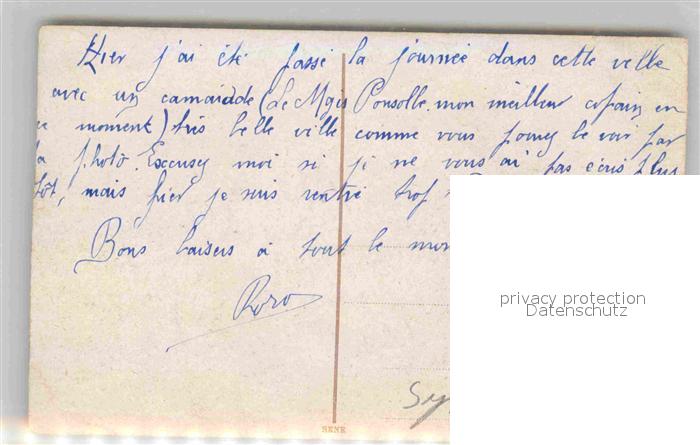 Hier j'ai été passé la journée dans cette ville
avec un camarade (Le Mgis Pousolle. mon meilleur copain en
ce moment) très belle ville comme vous pouvez le voir par
la photo. Excusez moi si je ne vous ai pas écris plus
tôt, mais hier je suis rentré trop
Bons baisers à tout le mon
Roro
privacy protection
Datenschutz
Sy
SENE